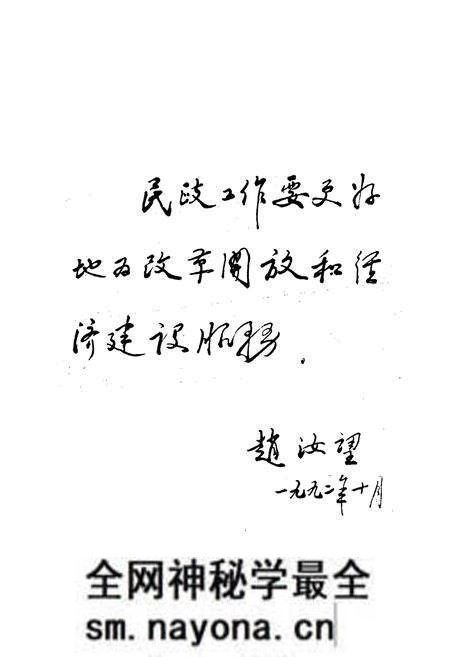 民政工作要更好
地为改革開放和經
济建设服務.
趙汝望
一九九二年十月
全网神秘学最全
sm.nayona.cn